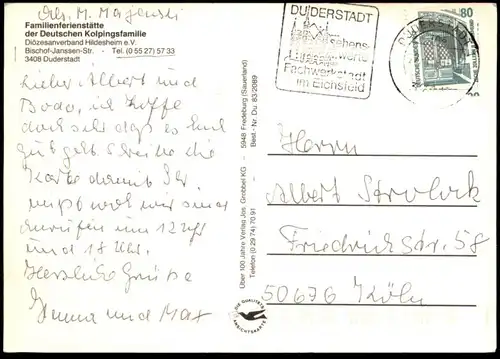 Abs. M. Majewski
Familienferienstätte
der Deutschen Kolpingsfamilie
Diözesanverband Hildesheim e.V.
Bischof-Janssen-Str. · Tel. (0 55 27) 57 33
3408 Duderstadt
Lieber Albert und
Bodo, ich hoffe
doch sehr daß es Euch
gut geht. Schreibe die
Karte damit Ihr
wißt wo wir sind
anrufen um 12 Uhr
und 18 Uhr.
Herzliche Grüße
Emma und Max
Über 100 Jahre Verlag Jos. Grobbel KG · 5948 Fredeburg (Sauerland)
Telefon (0 29 74) 70 91 · Best.-Nr. Du. 83/2089
DIE QUALITÄTS
ANSICHTSKARTE
DUDERSTADT
sehens-
werte
Fachwerkstadt
im Eichsfeld
80
Herrn
Albert
Friedrichstr. 58
50676 Köln